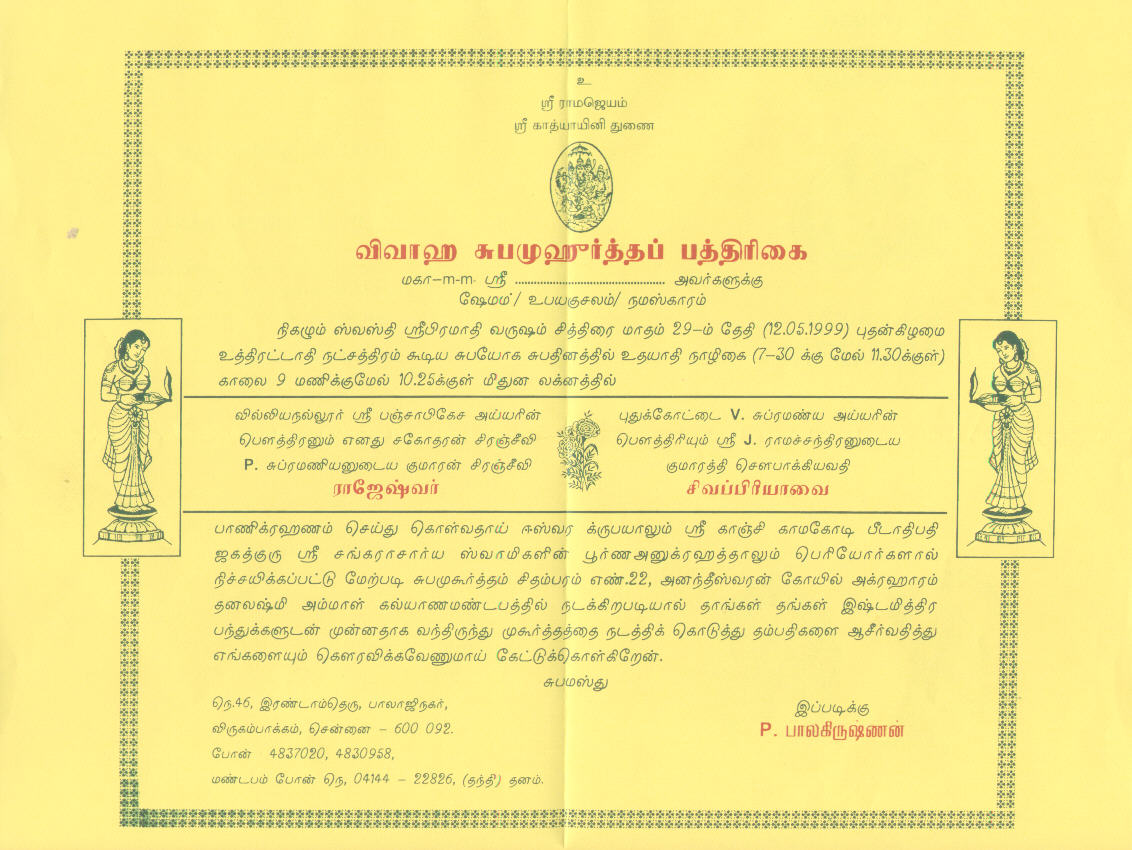 உ
ஸ்ரீ ராமஜெயம்
ஸ்ரீ காத்யாயினி துணை
விவாஹ சுபமுஹுர்த்தப் பத்திரிகை
மகா–m-m- ஸ்ரீ .............................................. அவர்களுக்கு
ஷேமம்/ உபயகுசலம்/ நமஸ்காரம்
நிகழும் ஸ்வஸ்தி ஸ்ரீபிரமாதி வருஷம் சித்திரை மாதம் 29–ம் தேதி (12.05.1999) புதன்கிழமை
உத்திரட்டாதி நட்சத்திரம் கூடிய சுபயோக சுபதினத்தில் உதயாதி நாழிகை (7–30 க்கு மேல் 11.30க்குள்)
காலை 9 மணிக்குமேல் 10.25க்குள் மிதுன லக்னத்தில்
வில்லியநல்லூர் ஸ்ரீ பஞ்சாபிகேச அய்யரின்
பௌத்திரனும் எனது சகோதரன் சிரஞ்சீவி
P. சுப்ரமணியனுடைய குமாரன் சிரஞ்சீவி
ராஜேஷ்வர்
புதுக்கோட்டை V. சுப்ரமண்ய அய்யரின்
பௌத்திரியும் ஸ்ரீ J. ராமச்சந்திரனுடைய
குமாரத்தி சௌபாக்கியவதி
சிவப்பிரியாவை
பாணிக்ரஹணம் செய்து கொள்வதாய் ஈஸ்வர க்ருபயாலும் ஸ்ரீ காஞ்சி காமகோடி பீடாதிபதி
ஜகத்குரு ஸ்ரீ சங்கராசார்ய ஸ்வாமிகளின் பூர்ணஅனுக்ரஹத்தாலும் பெரியோர்களால்
நிச்சயிக்கப்பட்டு மேற்படி சுபமுகூர்த்தம் சிதம்பரம் எண்.22, அனந்தீஸ்வரன் கோயில் அக்ரஹாரம்
தனலஷ்மி அம்மாள் கல்யாணமண்டபத்தில் நடக்கிறபடியால் தாங்கள் தங்கள் இஷ்டமித்திர
பந்துக்களுடன் முன்னதாக வந்திருந்து முகூர்த்தத்தை நடத்திக் கொடுத்து தம்பதிகளை ஆசீர்வதித்து
எங்களையும் கௌரவிக்கவேணுமாய் கேட்டுக்கொள்கிறேன்.
சுபமஸ்து
நெ.46, இரண்டாம்தெரு, பாலாஜிநகர்,
விருகம்பாக்கம், சென்னை – 600 092.
போன் 4837020, 4830958,
மண்டபம் போன் நெ, 04144 – 22826, (தந்தி) தனம்.
இப்படிக்கு
P. பாலகிருஷ்ணன்